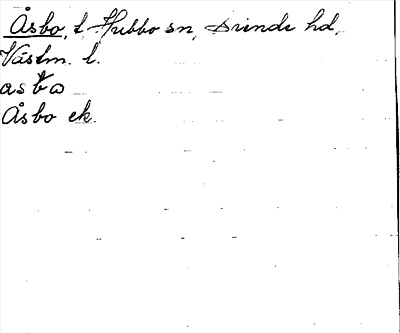 Åsbo, t. Hubbo sn, Siende hd,
Västm. l.
Åsbo ek.